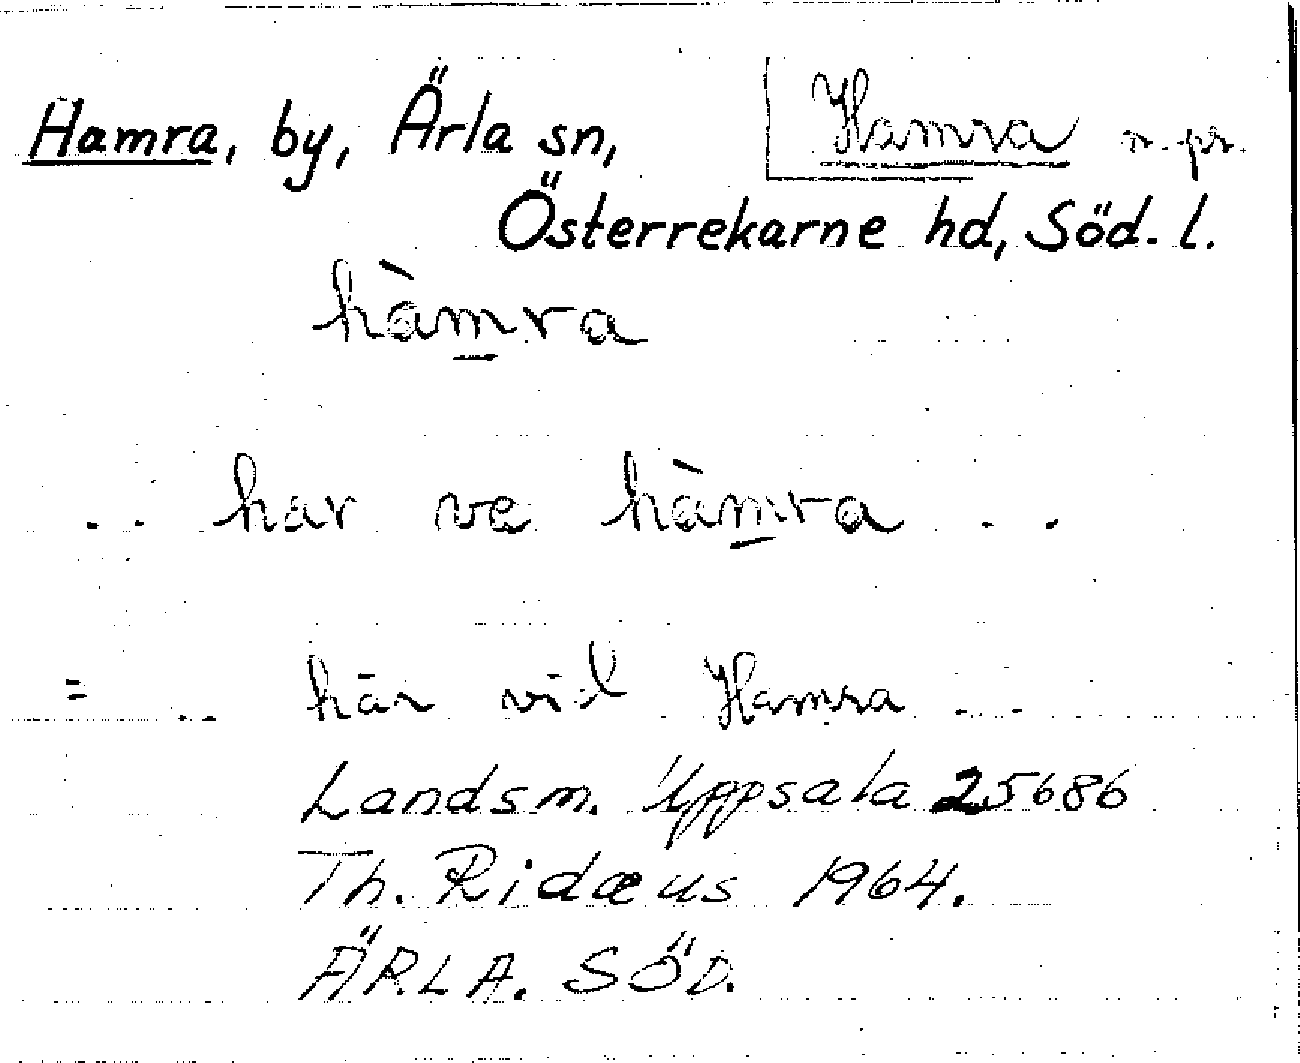 Hamra, by, Ärla sn,
Hamra n. pr.
Österrekarne hd, Söd. l.
hàm̲ra
.. har ve hàm̲ra ..
= .. här vid Hamra ..
Landsm. Uppsala 25686
Th. Ridæus 1964.
ÄRLA. SÖD.